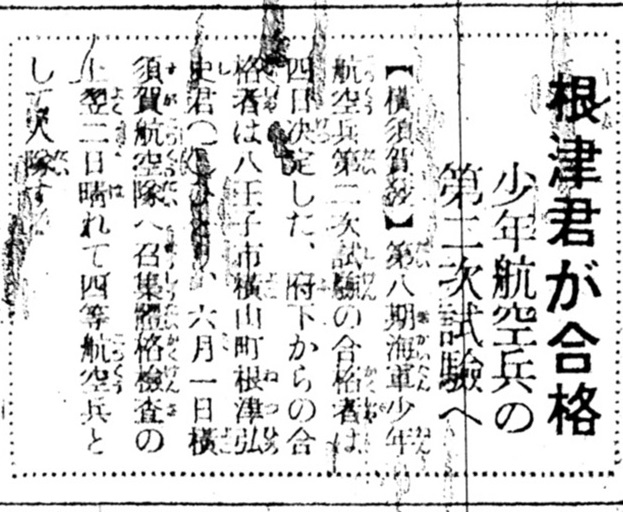 根津君が合格
少年航空兵の
第二次試驗へ
【横須賀發】第八期海軍少年
航空兵第二次試驗の合格者は
四日決定した、府下からの合
格者は八王子市横山町根津弘
史君 六月一日横
須賀航空隊へ召集體格檢査の
上翌二日晴れて四等航空兵と
して入隊す